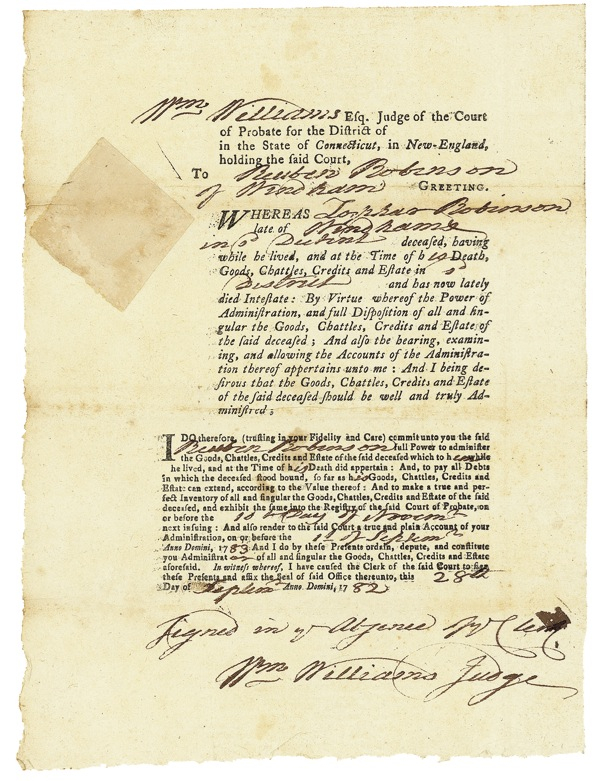 Wm Williams Esq. Judge of the Court
of Probate for the District of
in the State of Connecticut, in New-England,
holding the said Court,
To Reuben Robinson
of Windham GREETING.
WHEREAS Robinson
late of Windham
in sd District deceased, having
while he lived, and at the Time of his Death,
Goods, Chattles, Credits and Estate in sd
District and has now lately
died Intestate: By Virtue whereof the Power of
Administration, and full Disposition of all and sin-
gular the Goods, Chattles, Credits and Estate of
the said deceased; And also the hearing, examin-
ing, and allowing the Accounts of the Administra-
tion thereof appertains unto me: And I being de-
sirous that the Goods, Chattles, Credits and Estate
of the said deceased should be well and truly Ad-
ministred;
I DO therefore, (trusting in your Fidelity and Care) commit unto you the said
Reuben Robinson full Power to administer
the Goods, Chattles, Credits and Estate of the said deceased which to him while
he lived, and at the Time of his Death did appertain: And, to pay all Debts
in which the deceased stood bound, so far as his Goods, Chattles, Credits and
Estate can extend, according to the Value thereof: And to make a true and per-
fect Inventory of all and singular the Goods, Chattles, Credits and Estate of the said
deceased, and exhibit the same into the Registry of the said Court of Probate, on
or before the Day of Novemr
next insuing: And also render to the said Court a true and plain Account of your
Administration, on or before the 1st of Septemr
Anno Domini, 1783 And I do by these Presents ordain, depute, and constitute
you Administrator of all and singular the Goods, Chattles, Credits and Estate
aforesaid. In witness whereof, I have caused the Clerk of the said Court to sign
these Presents and affix the Seal of said Office thereunto, this 28th
Day of Septemr Anno Domini, 1782
Signed in ye Absence of ye Clerk,
Wm Williams Judge